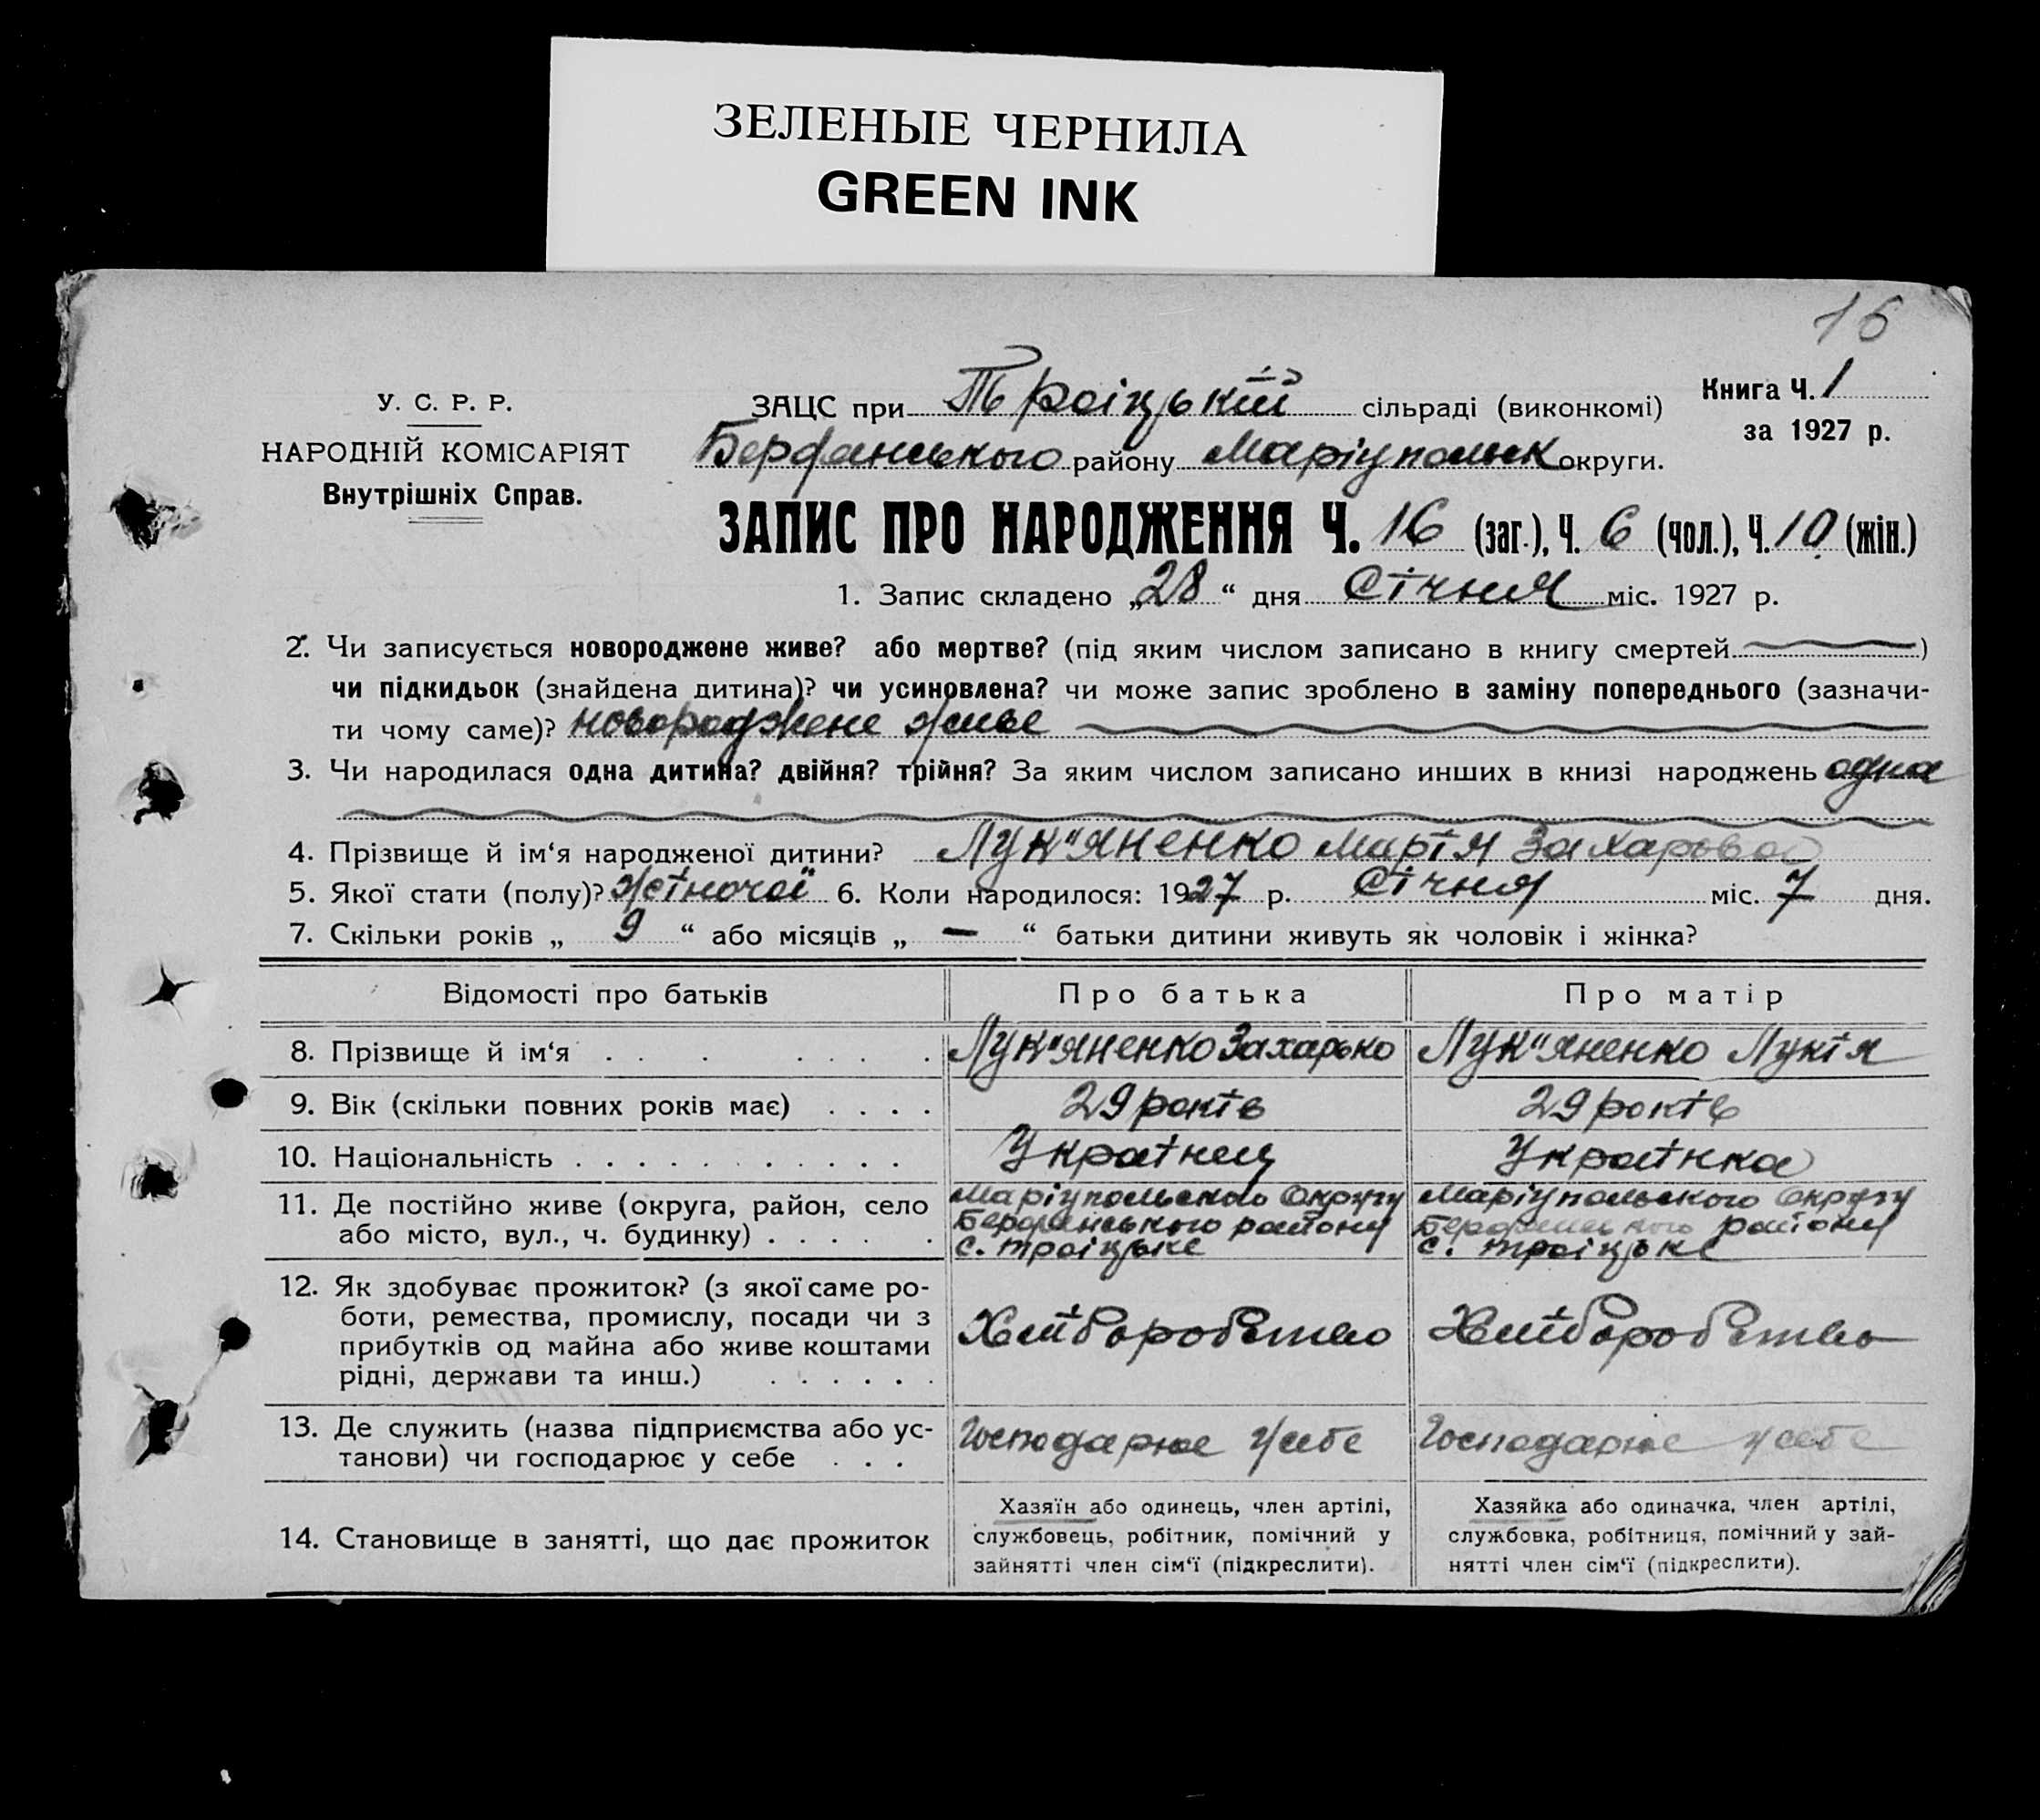 ЗЕЛЕНЫЕ ЧЕРНИЛА
GREEN INK
16
У. С. Р. Р.
НАРОДНІЙ КОМІСАРІЯТ
Внутрішніх Справ.
ЗАЦС при Троіцькій сільраді (виконкомі)
Книга Ч. 1
за 1927 р.
Бердянського району Маріупольск округи.
ЗАПИС ПРО НАРОДЖЕННЯ Ч. 16 (заг.), Ч. 6 (чол.), Ч. 10 (жін.)
1. Запис складено „28“ дня Січня міс. 1927 р.
2. Чи записується новороджене живе? або мертве? (під яким числом записано в книгу смертей )
чи підкидьок (знайдена дитина)? чи усиновлена? чи може запис зроблено в заміну попереднього (зазначи-
ти чому саме)? новороджене живе
3. Чи народилася одна дитина? двійня? трійня? За яким числом записано инших в книзі народжень одна
4. Прізвище й ім‘я народженої дитини? Лук"яненко Марія Захарьвоо
5. Якої стати (полу)? жіночої 6. Коли народилося: 1927 р. Січня міс. 7 дня.
7. Скільки років „ 9 “ або місяців „ — “ батьки дитини живуть як чоловік і жінка?
Відомості про батьків Про батька Про матір
8. Прізвище й ім‘я . . . . . . . Лук"яненко Захарько Лук"яненко Лукія
9. Вік (скільки повних років має) . . . . 29 років 29 років
10. Національність . . . . . . . . . . . Українец Українка
11. Де постійно живе (округа, район, село
або місто, вул., ч. будинку) . . . . . .
Маріупольского Округу
Бердянського району
с. Троіцьке
Маріупольского Округу
Бердянського району
с. Троіцьке
12. Як здобуває прожиток? (з якої саме ро-
боти, ремества, промислу, посади чи з
прибутків од майна або живе коштами
рідні, держави та инш.) . . . . . .
Хліборобство
Хліборобство
13. Де служить (назва підприємства або ус-
танови) чи господарює у себе . . .
Господарює у себе
Господарює у себе
14. Становище в занятті, що дає прожиток
Хазяїн або одинець, член артілі,
службовець, робітник, помічний у
зайнятті член сім‘ї (підкреслити).
Хазяйка або одиначка, член артілі,
службовка, робітниця, помічний у зай-
нятті член сім‘ї (підкреслити).